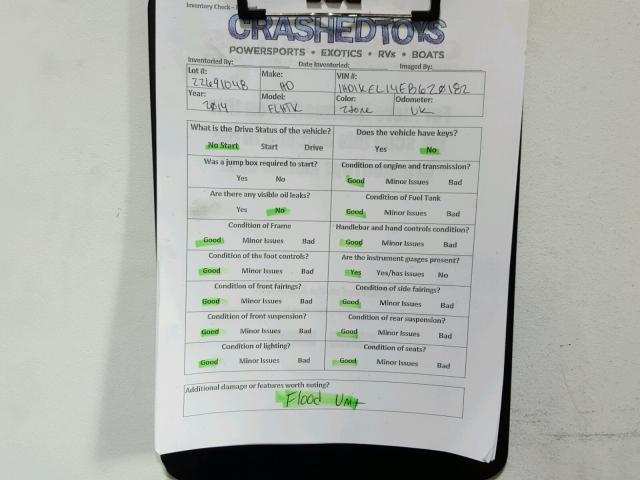 Inventory Check –
CRASHEDTOYS
POWERSPORTS • EXOTICS • RVs • BOATS
Inventoried By: Date Inventoried: Imaged By:
Lot #: Make: VIN #:
22691048 HD 1HD1KEL14EB620182
Year: Model: Color: Odometer:
2014 FLHTK 2tone UK
What is the Drive Status of the vehicle? Does the vehicle have keys?
No Start Start Drive Yes No
Was a jump box required to start? Condition of engine and transmission?
Yes No Good Minor Issues Bad
Are there any visible oil leaks? Condition of Fuel Tank
Yes No Good Minor Issues Bad
Condition of Frame Handlebar and hand controls condition?
Good Minor Issues Bad Good Minor Issues Bad
Condition of the foot controls? Are the instrument guages present?
Good Minor Issues Bad Yes Yes/has Issues No
Condition of front fairings? Condition of side fairings?
Good Minor Issues Bad Good Minor Issues Bad
Condition of front suspension? Condition of rear suspension?
Good Minor Issues Bad Good Minor Issues Bad
Condition of lighting? Condition of seats?
Good Minor Issues Bad Good Minor Issues Bad
Additional damage or features worth noting?
Flood Unit